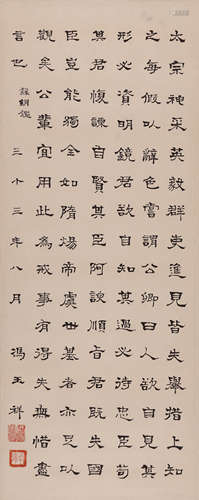 太宗神采英毅群吏進見皆失舉措上知
之每假以辭色嘗謂公卿曰人欲自見其
形必資明鏡君欲自知其過必待忠臣苟
其君愎諫自賢其臣阿諛順旨君既失國
臣豈能獨全如隋煬帝虞世基者亦足以
觀矣公輩宜用此為戒事有得失無惜盡
言也 錄綱鑑 三十三年八月 馮玉祥